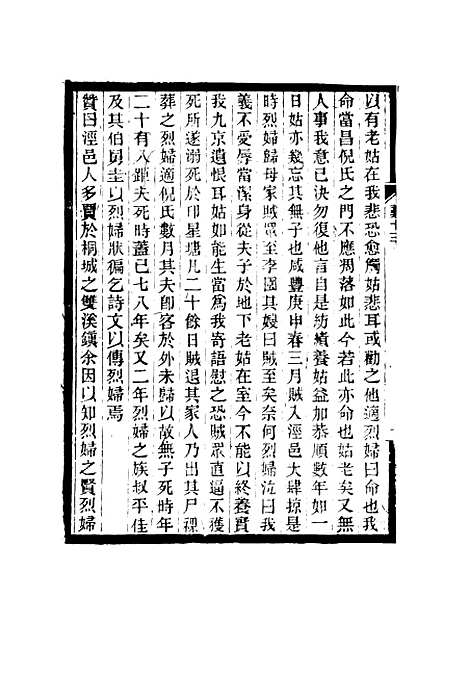 以有老姑在我悲恐愈觸姑悲耳或勸之他適烈婦曰命也我
命當昌倪氏之門不應凋落如此今若此亦命也姑老矣又無
人事我意已決勿復他言自是紡績養姑益加恭順數年如一
日姑亦幾忘其無子也咸豐庚申春三月賊入涇邑大肆掠是
時烈婦歸母家賊眾至李園其嫂曰賊至矣奈何烈婦泣曰我
義不受辱當潔身從夫子於地下老姑在室今不能以終養貴
我九京遺恨耳姑如能生當為我寄語慰之恐賊眾直逼不獲
死所遂溺死於印星塘凡二十餘日賊退其家人乃出其尸裸
葬之烈婦適倪氏數月其夫卽客於外未歸以故無子死時年
二十有八距夫死時蓋已七八年矣又二年烈婦之族叔平佳
及其伯舅圭以烈婦狀徧乞詩文以傳烈婦焉
贊曰涇邑人多賈於桐城之雙溪鎮余因以知烈婦之賢烈婦